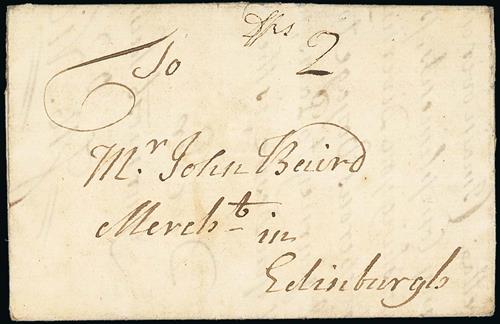 To 2
Mr. John Baird
Mercht. in
Edinburgh